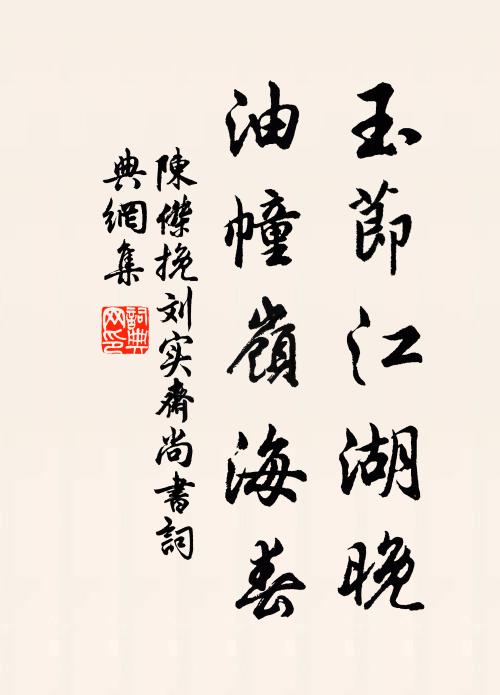 玉節江湖晚
油幢嶺海春
陳傑挽刘实齋尚書詞
典網集
詞典网印